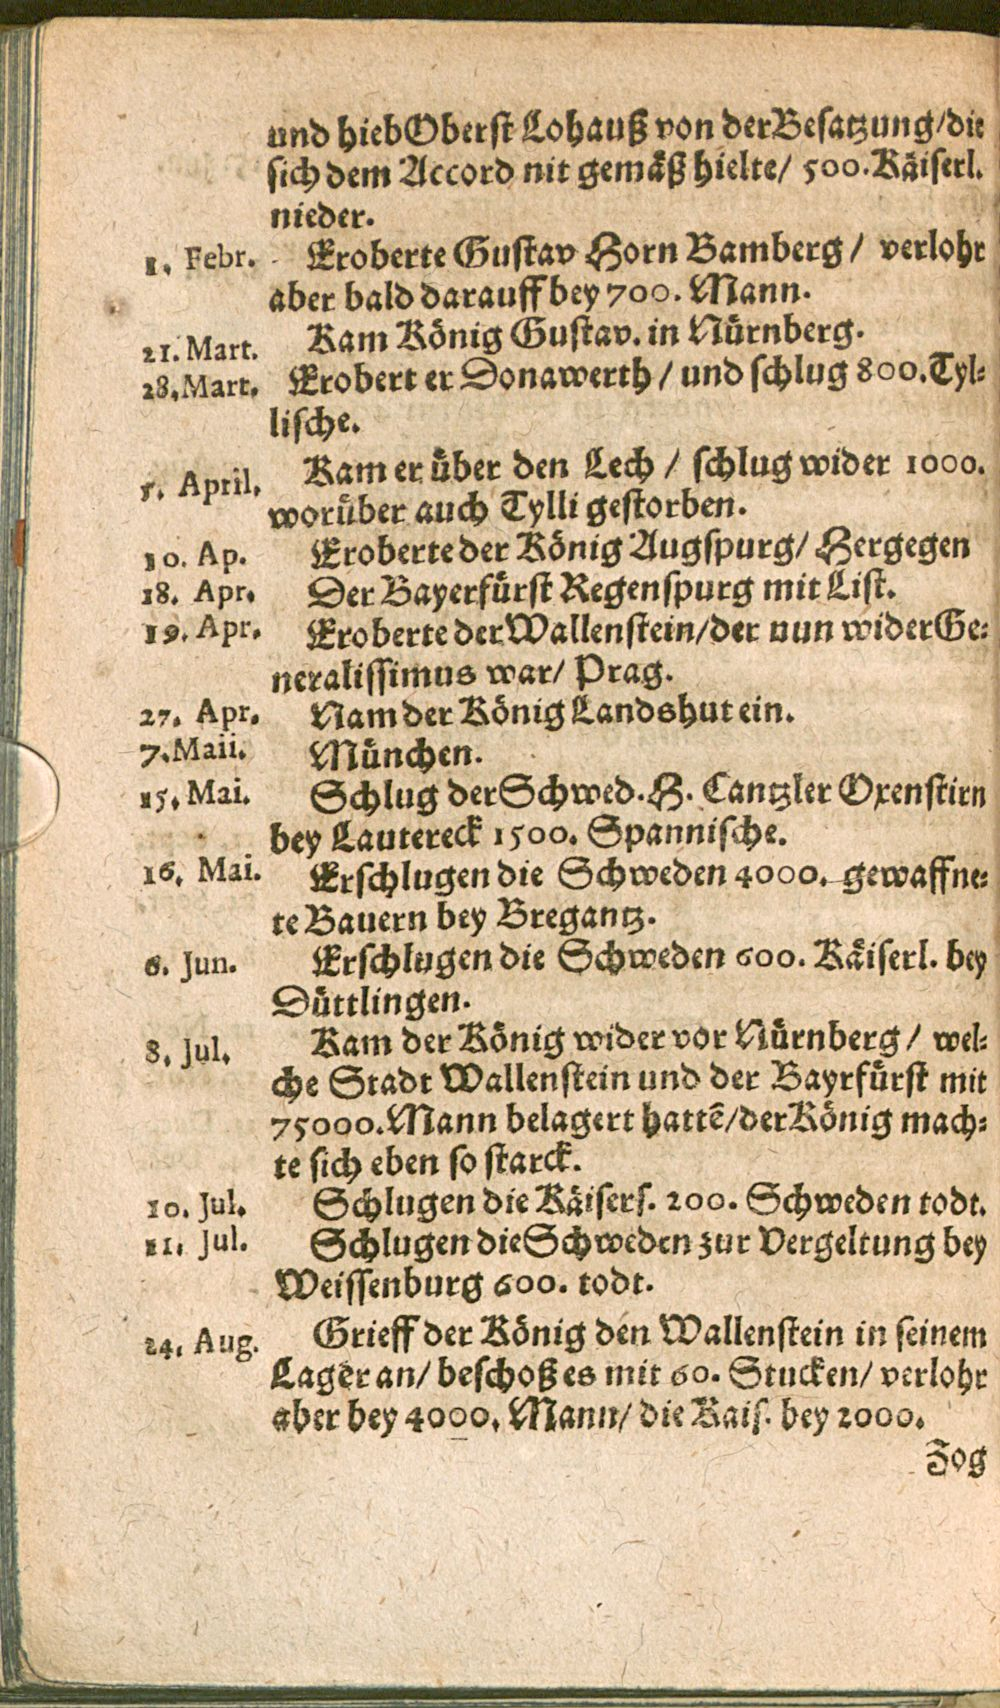 und hieb Oberst Lohauß von der Besatzung/die
sich dem Accord nit gemäß hielte/ 500. Käiserl.
nieder.
1. Febr. Eroberte Gustav Horn Bamberg/ verlohr
aber bald darauff bey 700. Mann.
21. Mart. Kam König Gustav. in Nürnberg.
28. Mart. Erobert er Donawerth/ und schlug 800. Tyl-
lische.
5. April. Kam er über den Lech/ schlug wider 1000.
worüber auch Tylli gestorben.
10. Ap. Eroberte der König Augspurg/ Hergegen
18. Apr. Der Bayerfürst Regenspurg mit List.
19. Apr. Eroberte der Wallenstein/der nun wider Ge-
neralissimus war/ Prag.
27. Apr. Nam der König Landshut ein.
7. Maii. München.
15. Mai. Schlug der Schwed. H. Cantzler Oxenstirn
bey Lautereck 1500. Spannische.
16. Mai. Erschlugen die Schweden 4000. gewaffne-
te Bauern bey Bregantz.
6. Jun. Erschlugen die Schweden 600. Käiserl. bey
Düttlingen.
8. Jul. Kam der König wider vor Nürnberg/ wel-
che Stadt Wallenstein und der Bayrfürst mit
75000. Mann belagert hattẽ/der König mach-
te sich eben so starck.
10. Jul. Schlugen die Käisers. 200. Schweden todt.
11. Jul. Schlugen die Schweden zur Vergeltung bey
Weissenburg 600. todt.
24. Aug. Grieff der König den Wallenstein in seinem
Lager an/ beschoß es mit 60. Stucken/ verlohr
aber bey 4000. Mann/ die Kais. bey 2000.
Zog